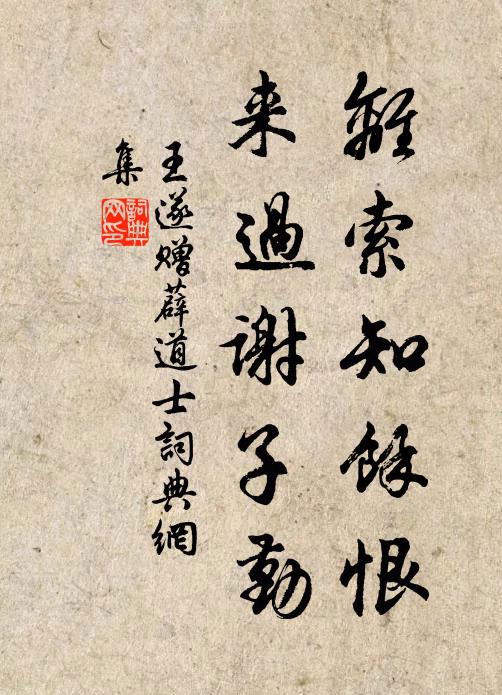 離索知餘恨
来過謝子勤
王遂贈薜道士詞典網
集
詞典
网印